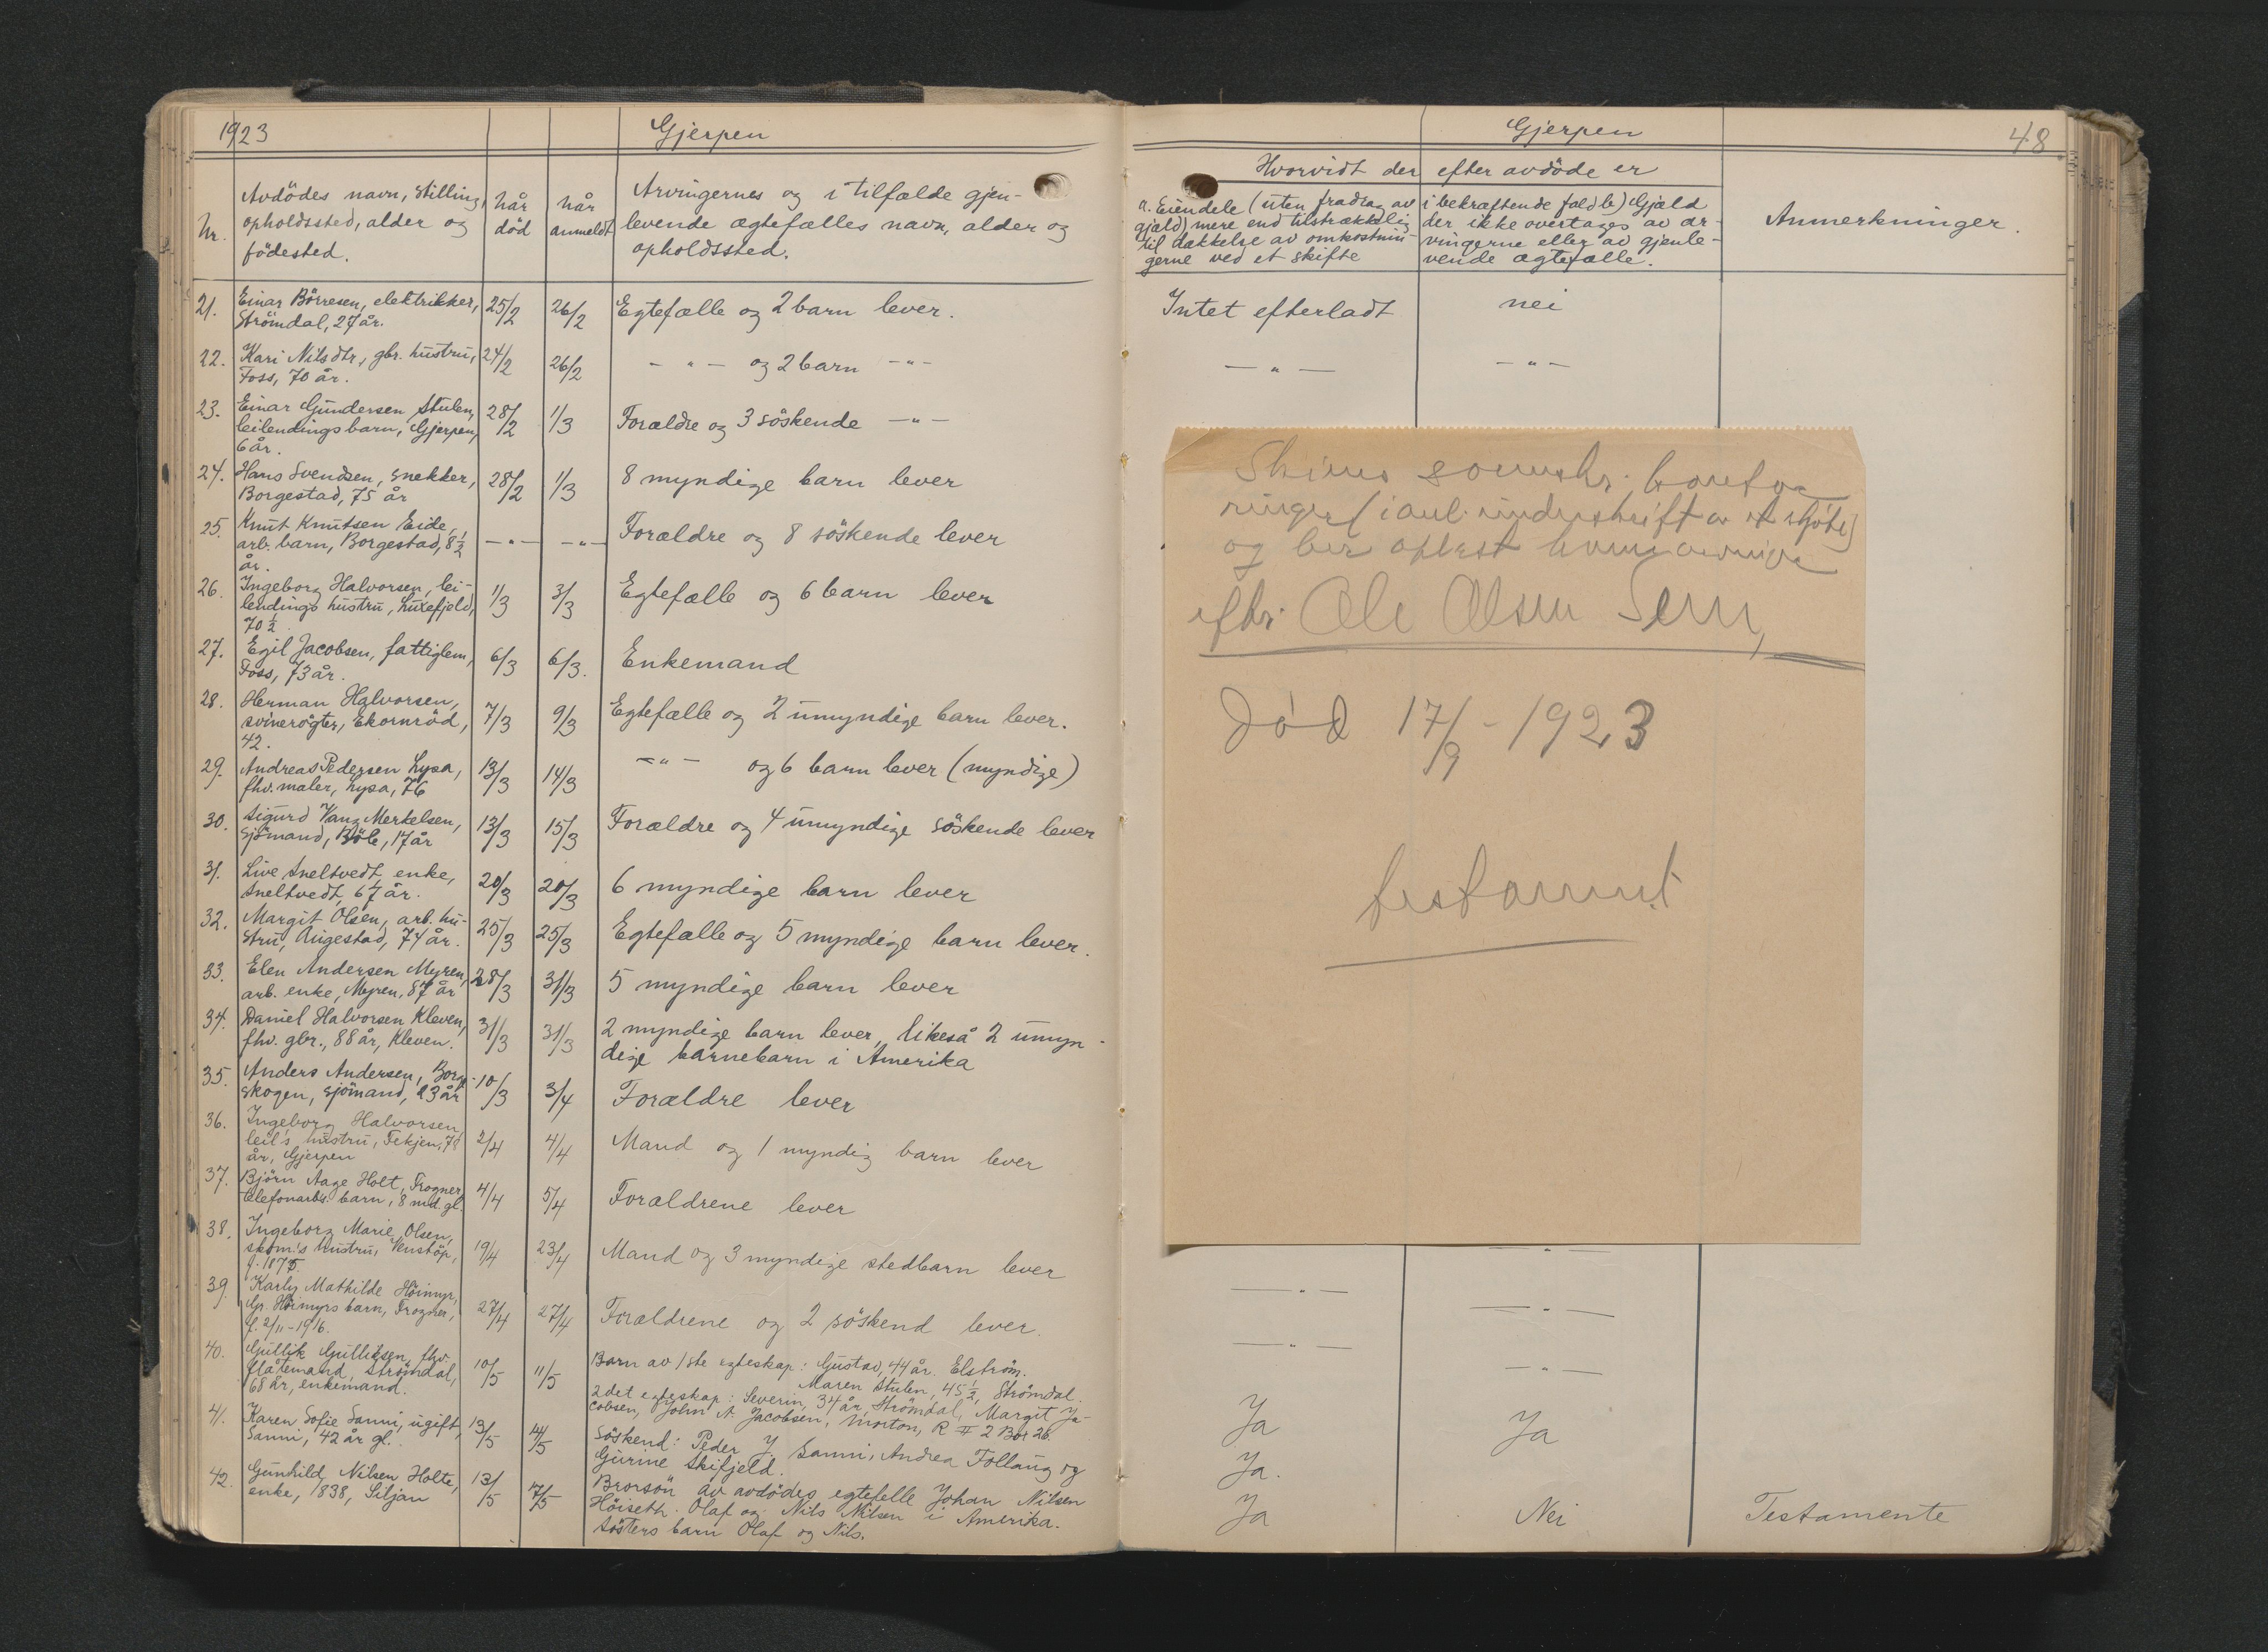 1923
Gjerpen
Nr.
Avdödes navn, stilling,
opholdssted, alder og
födested.
når
död
når
anmeldt
Arvingernes og i tilfælde gjen-
levende ægtefælles navn, alder og
opholdssted.
21. Einar Börresen, elektrikker, 25/2 26/2 Egtefælle og 2 barn lever.
Strömdal, 27 år.
22. Kari Nilsdtr, gbr. hustru, 24/2 26/2 - " - og 2 barn - " -
Foss, 70 år.
23. Einar Gundersen Stulen, 28/2 1/3 Forældre og 3 söskende - " -
leilendings barn, Gjerpen,
6 år.
24. Hans Svendsen, snekker, 28/2 1/3 8 myndige barn lever
Borgestad, 75 år
25. Knut Knutsen Eide, - " - - " - Forældre og 8 söskende lever
arb. barn, Borgestad, 8 1/2
år.
26. Ingeborg Halvorsen, lei- 1/3 3/3 Egtefælle og 6 barn lever
lendings hustru, Luxefjeld,
70 1/2
27. Egil Jacobsen, fattiglem, 6/3 6/3. Enkemand
Foss, 73 år.
28. Herman Halvorsen, 7/3 9/3 Egtefælle og 2 umyndige barn lever.
svinerögter, Ekornröd,
42.
29. Andreas Pedersen Lysa, 13/3 14/3 - " - og 6 barn lever (myndige)
fhv. maler, Lysa, 76
30. Sigurd Vang Merkelsen, 13/3 15/3 Forældre og 4 umyndige söskende lever
Sjömand, Böle, 17 år
31. Live Sneltvedt, enke, 20/3 20/3 6 myndige barn lever
Sneltvedt, 67 år.
32. Margit Olsen, arb. hu- 25/3 25/3 Egtefælle og 5 myndige barn lever.
stru, Augestad, 74 år.
33. Elen Andersen Myren, 28/3 31/3 5 myndige barn lever
arb. enke, Myren, 87 år
34. Daniel Halvorsen Kleven, 31/3 31/3 2 myndige barn lever, likeså 2 umyn-
fhv. gbr., 88 år, Kleven. dige barnebarn i Amerika
35. Anders Andersen, Borge- 10/3 3/4 Forældre lever
skogen, sjömand, 23 år
36. Ingeborg Halvorsen, 2/4 4/4 Mand og 1 myndig barn lever
leil's hustru, Tekjen, 78
år, Gjerpen
37. Björn Aage Holt, Frogner, 4/4 5/4 Forældrene lever
telefonarb's barn, 8 md. gl.
38. Ingeborg Marie Olsen, 19/4 23/4 Mand og 3 myndige stedbarn lever
skom's hustru, Venstöp,
f. 1875.
39. Karly Mathilde Höimyr, 27/4 27/4 Forældrene og 2 söskend lever.
Gr. Höimyrs barn, Frogner,
f. 2/11-1916.
40. Gullik Gulliksen, fhv. 10/5 11/5 Barn av 1ste egteskap: Gustav, 44 år. Elström.
flåtemand, Strömdal, Maren Stulen, 45 1/2, Strömdal.
68 år, enkemand. 2det egteskap: Severin, 34 år, Strömdal, Margit Ja-
cobsen, John A. Jacobsen, Morton, R # 2 Box 26.
41. Karen Sofie Sanni, ugift, 13/5 14/5 Söskend: Peder J. Sanni, Andrea Follaug og
Sanni, 42 år gl. Gurine Skifjeld.
42. Gunhild Nilsen Holte, 13/5 17/5 Brorsön av avdödes egtefelle Johan Nilsen
enke, 1838, Siljan Höiseth. Olaf og Nils Nilsen i Amerika.
Sösters barn Olaf og Nils.
Gjerpen
48
Hvorvidt der efter avdöde er
a. Eiendele (uten fradrag av
gjæld) mere end tilstrækkelig
til dækkelse av omkostnin-
gerne ved et skifte
i bekræftende fald b) Gjæld
der ikke overtages av ar-
vingerne eller av gjenle-
vende ægtefælle.
Anmerkninger.
Intet efterladt nei
- " - - " -
og
efter Ole Olsen Sem,
Död 17/9 - 1923
testament
- " -
- " - - " -
- " - - " -
Ja Ja
Ja.
Ja Nei Testamente